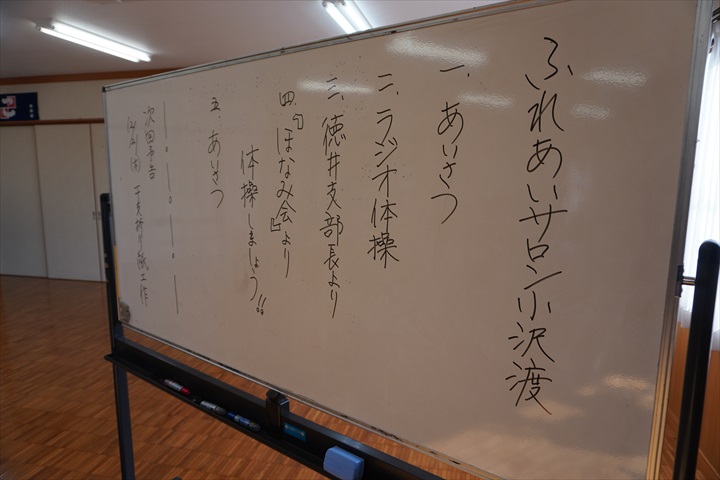 ふれあいサロン小沢渡
一、あいさつ
二、ラジオ体操
三、徳井支部長より
四、『ほなみ会』より
体操しましょう!!
五、あいさつ
次回予告